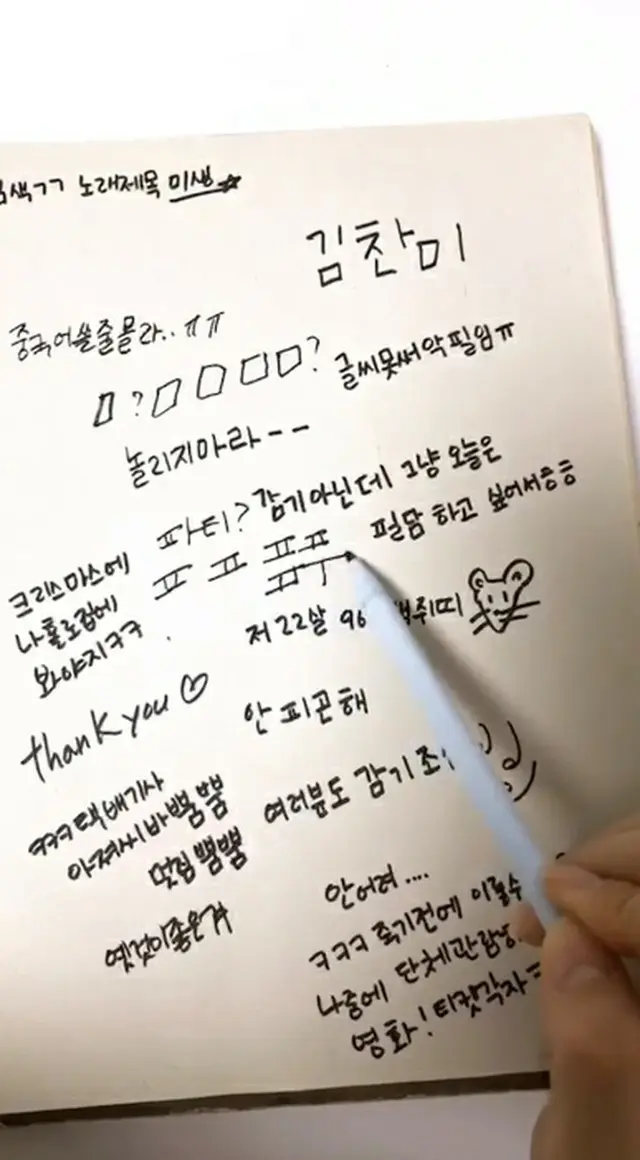 노래제목 미생
김찬미
중국어쓸줄몰라.. ㅠㅠ
ㅁ?ㅁㅁㅁㅁ?
글씨못써악필임ㅠ
놀리지마라--
파티? 감기아닌데 그냥 오늘은
필담 하고 싶어서ㅎㅎ
크리스마스에
나홀로집에
봐야지ㅋㅋ
ㅍ ㅍ ㅍㅍ
저 22살 96 쥐띠
thank you
안 피곤해
ㅋㅋㅋ택배기사
아져씨 바뺨뿜
멋짐 뺌뺌
여러분도 감기 조
옛것이좋은겨
안어려....
ㅋㅋㅋ 죽기전에 이룰수
나중에 단체관람
영화! 티켓각자